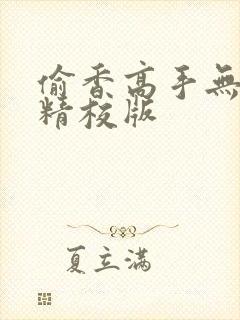 偷香高手無
精校版
夏立滿